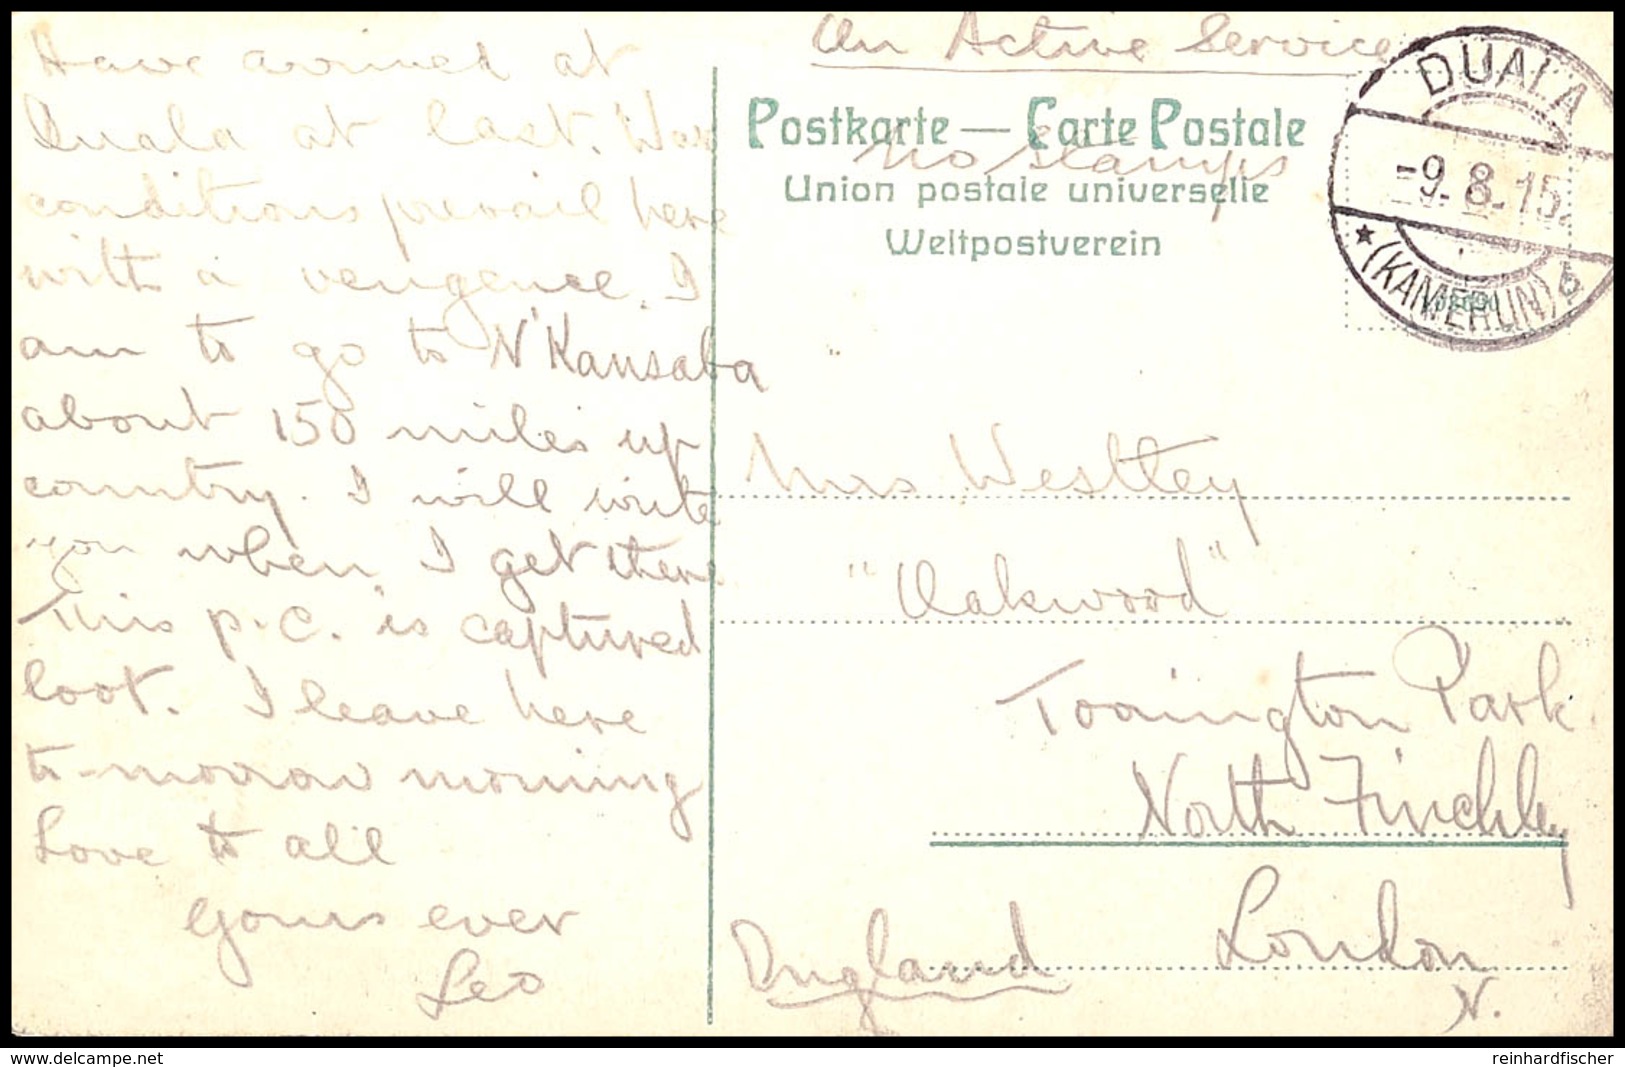 Have arrived at
Duala at last. War
conditions prevail here
with a vengence. I
am to go to N'Kansaba
about 150 miles up
country. I will write
you when I get there
This p.c. is captured
loot. I leave here
to-morrow morning
Love to all
yours ever
Leo
On Active Service
Postkarte — Carte Postale
No stamps
Union postale universelle
Weltpostverein
DUALA
-9.8.15.
* (KAMERUN) b
Mrs Westley
"Oakwood"
Torrington Park
North Finchley
London
N.
England
www.delcampe.net
reinhardfischer